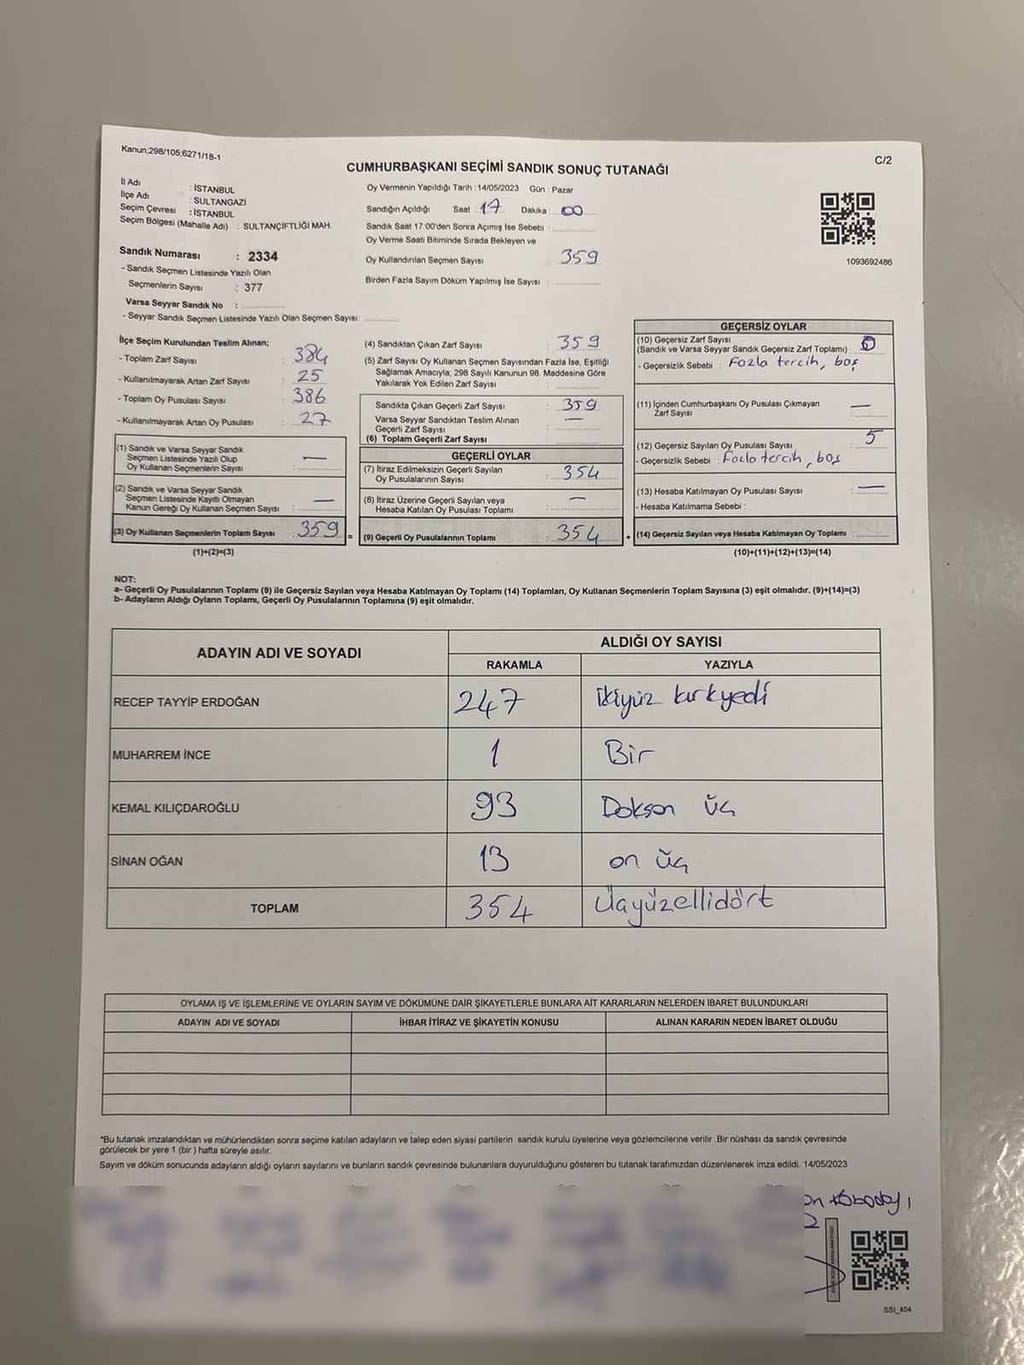 Kanun;298/105,6271/18-1
C/2
CUMHURBAŞKANI SEÇİMİ SANDIK SONUÇ TUTANAĞI
İl Adı : İSTANBUL
İlçe Adı : SULTANGAZİ
Seçim Çevresi : İSTANBUL
Seçim Bölgesi (Mahalle Adı) : SULTANÇİFTLİĞİ MAH.
Sandık Numarası : 2334
- Sandık Seçmen Listesinde Yazılı Olan
Seçmenlerin Sayısı : 377
Varsa Seyyar Sandık No :
- Seyyar Sandık Seçmen Listesinde Yazılı Olan Seçmen Sayısı:
Oy Vermenin Yapıldığı Tarih :14/05/2023 Gün : Pazar
Sandığın Açıldığı Saat : 17 Dakika : 00
Sandık Saat 17:00'den Sonra Açımış İse Sebebi :
Oy Verme Saati Bitiminde Sırada Bekleyen ve
Oy Kullandırılan Seçmen Sayısı : 359
Birden Fazla Sayım Döküm Yapılmış İse Sayısı :
1093692486
İlçe Seçim Kurulundan Teslim Alınan;
- Toplam Zarf Sayısı : 384
- Kullanılmayarak Artan Zarf Sayısı : 25
- Toplam Oy Pusulası Sayısı : 386
- Kullanılmayarak Artan Oy Pusulası : 27
(1) Sandık ve Varsa Seyyar Sandık
Seçmen Listesinde Yazılı Olup
Oy Kullanan Seçmenlerin Sayısı : —
(2) Sandık ve Varsa Seyyar Sandık
Seçmen Listesinde Kayıtlı Olmayan
Kanun Gereği Oy Kullanan Seçmen Sayısı : —
(3) Oy Kullanan Seçmenlerin Toplam Sayısı : 359 =
(1)+(2)=(3)
(4) Sandıktan Çıkan Zarf Sayısı : 359
(5) Zarf Sayısı Oy Kullanan Seçmen Sayısından Fazla İse, Eşitliği
Sağlamak Amacıyla; 298 Sayılı Kanunun 98. Maddesine Göre
Yakılarak Yok Edilen Zarf Sayısı :
Sandıkta Çıkan Geçerli Zarf Sayısı : 359
Varsa Seyyar Sandıktan Teslim Alınan
Geçerli Zarf Sayısı : —
(6) Toplam Geçerli Zarf Sayısı :
GEÇERLİ OYLAR
(7) İtiraz Edilmeksizin Geçerli Sayılan
Oy Pusulalarının Sayısı : 354
(8) İtiraz Üzerine Geçerli Sayılan veya
Hesaba Katılan Oy Pusulası Toplamı : —
(9) Geçerli Oy Pusulalarının Toplamı : 354 +
GEÇERSİZ OYLAR
(10) Geçersiz Zarf Sayısı
(Sandık ve Varsa Seyyar Sandık Geçersiz Zarf Toplamı) :
- Geçersizlik Sebebi : Fazla tercih, boş
(11) İçinden Cumhurbaşkanı Oy Pusulası Çıkmayan
Zarf Sayısı : —
(12) Geçersiz Sayılan Oy Pusulası Sayısı : 5
- Geçersizlik Sebebi : Fazla tercih, boş
(13) Hesaba Katılmayan Oy Pusulası Sayısı : —
- Hesaba Katılmama Sebebi :
(14) Geçersiz Sayılan veya Hesaba Katılmayan Oy Toplamı :
(10)+(11)+(12)+(13)=(14)
NOT:
a- Geçerli Oy Pusulalarının Toplamı (9) ile Geçersiz Sayılan veya Hesaba Katılmayan Oy Toplamı (14) Toplamları, Oy Kullanan Seçmenlerin Toplam Sayısına (3) eşit olmalıdır. (9)+(14)=(3)
b- Adayların Aldığı Oyların Toplamı, Geçerli Oy Pusulalarının Toplamına (9) eşit olmalıdır.
ADAYIN ADI VE SOYADI
ALDIĞI OY SAYISI
RAKAMLA YAZIYLA
RECEP TAYYİP ERDOĞAN 247 ikiyüz kırkyedi
MUHARREM İNCE 1 Bir
KEMAL KILIÇDAROĞLU 93 Doksan üç
SİNAN OĞAN 13 on üç
TOPLAM 354 Üçyüzellidört
OYLAMA İŞ VE İŞLEMLERİNE VE OYLARIN SAYIM VE DÖKÜMÜNE DAİR ŞİKAYETLERLE BUNLARA AİT KARARLARIN NELERDEN İBARET BULUNDUKLARI
ADAYIN ADI VE SOYADI İHBAR İTİRAZ VE ŞİKAYETİN KONUSU ALINAN KARARIN NEDEN İBARET OLDUĞU
*Bu tutanak imzalandıktan ve mühürlendikten sonra seçime katılan adayların ve talep eden siyasi partilerin sandık kurulu üyelerine veya gözlemcilerine verilir. Bir nüshası da sandık çevresinde
görülecek bir yere 1 (bir) hafta süreyle asılır.
Sayım ve döküm sonucunda adayların aldığı oyların sayılarını ve bunların sandık çevresinde bulunanlara duyurulduğunu gösteren bu tutanak tarafımızdan düzenlenerek imza edildi. 14/05/2023
SSI_404